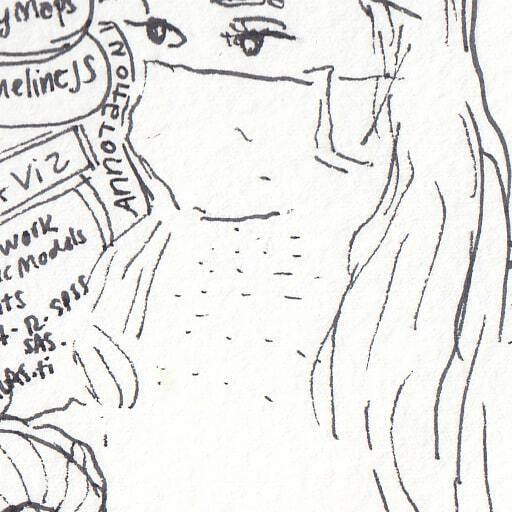 yMaps
melineJS
Annotation
Viz
work
ic Models
ts
R. SPSS
SAS.
las.ti